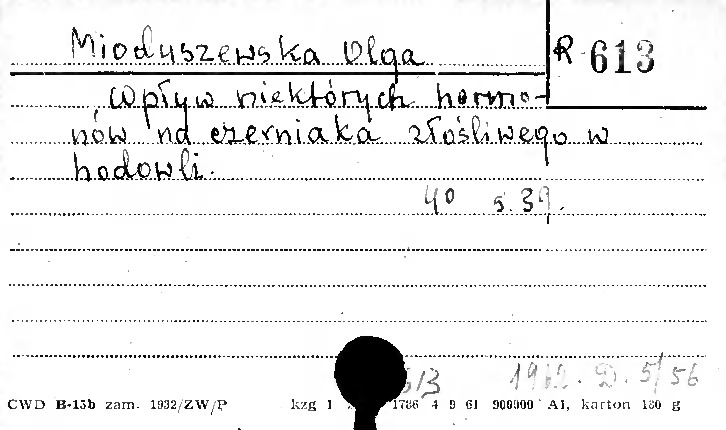 Mioduszewska Olga
R 613
Wpływ niektórych hormo-
nów na czerniaka złośliwego w
hodowli.
4° s. 39.
613 1962. D. 5/56
CWD B-15b zam. 1932/ZW/P kzg 1 1786 4 9 61 900000 A1, karton 180 g